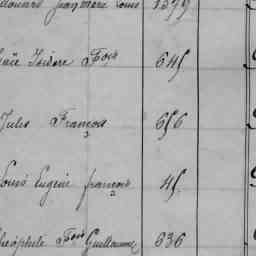 Jean Marc Louis 1379
Isidore Fçois 645
Jules François 656
Louis Eugène françois 45
Théophile Fçois Guillaume 636